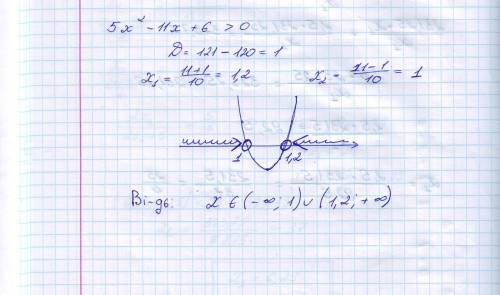 5x² - 11x + 6 > 0
D = 121 - 120 = 1
x₁ = (11+1)/10 = 1,2 x₂ = (11-1)/10 = 1
1 1,2
Ві-дь: x ∈ (-∞; 1) ∪ (1,2; +∞)